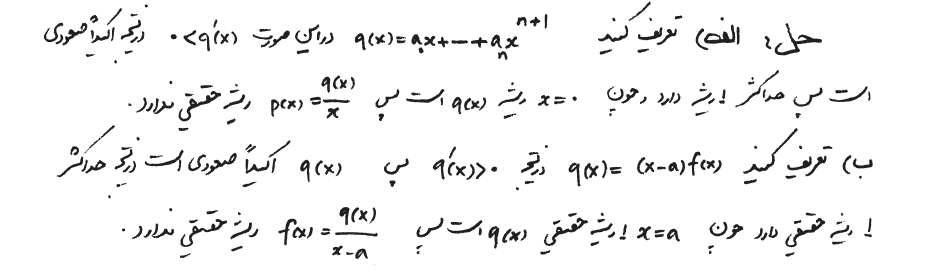 حل: الف) تعریف کنید q(x)=a₀x+---+aₙxⁿ⁺¹ دراین صورت ۰<q'(x) درنتیجه اکیداً صعودی
است پس حداکثر ۱ ریشه دارد و چون x=۰ ریشه q(x) است پس p(x)=q(x)/x ریشه حقیقی ندارد.
ب) تعریف کنید q(x)=(x-a)f(x) درنتیجه q'(x)>۰ پس q(x) اکیداً صعودی است درنتیجه حداکثر
۱ ریشه حقیقی دارد چون x=a ۱ ریشه حقیقی q(x) است پس f(x)=q(x)/x-a ریشه حقیقی ندارد.